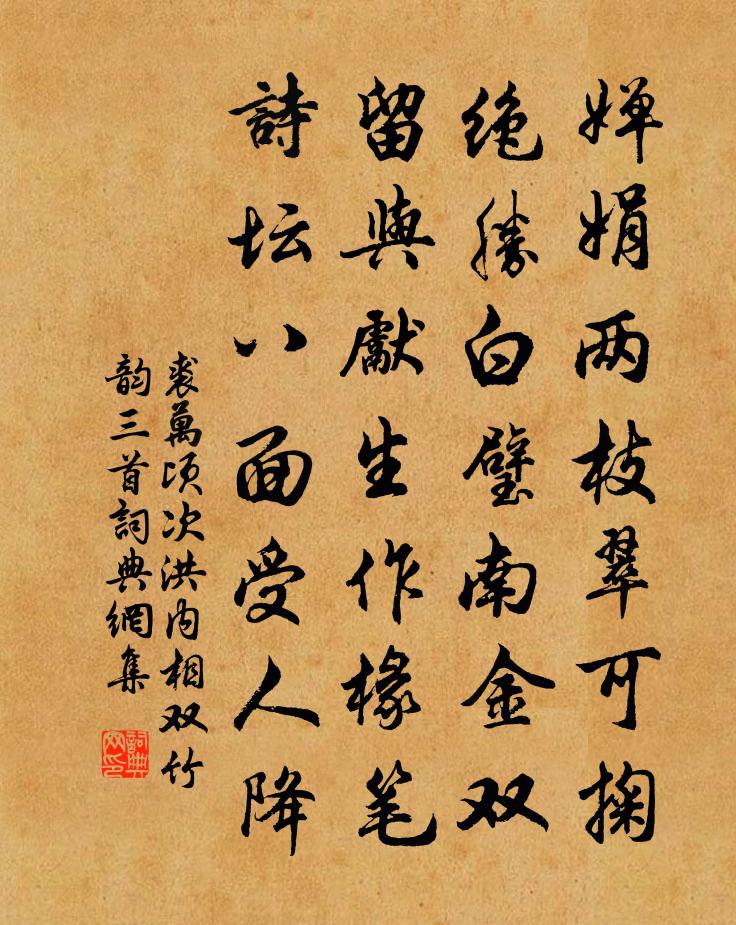 婵娟两枝翠可掬
绝勝白璧南金双
留與獻生作椽笔
詩坛八面受人降
裘萬頃次洪内相双竹
韵三首詞典網集
詞典网印